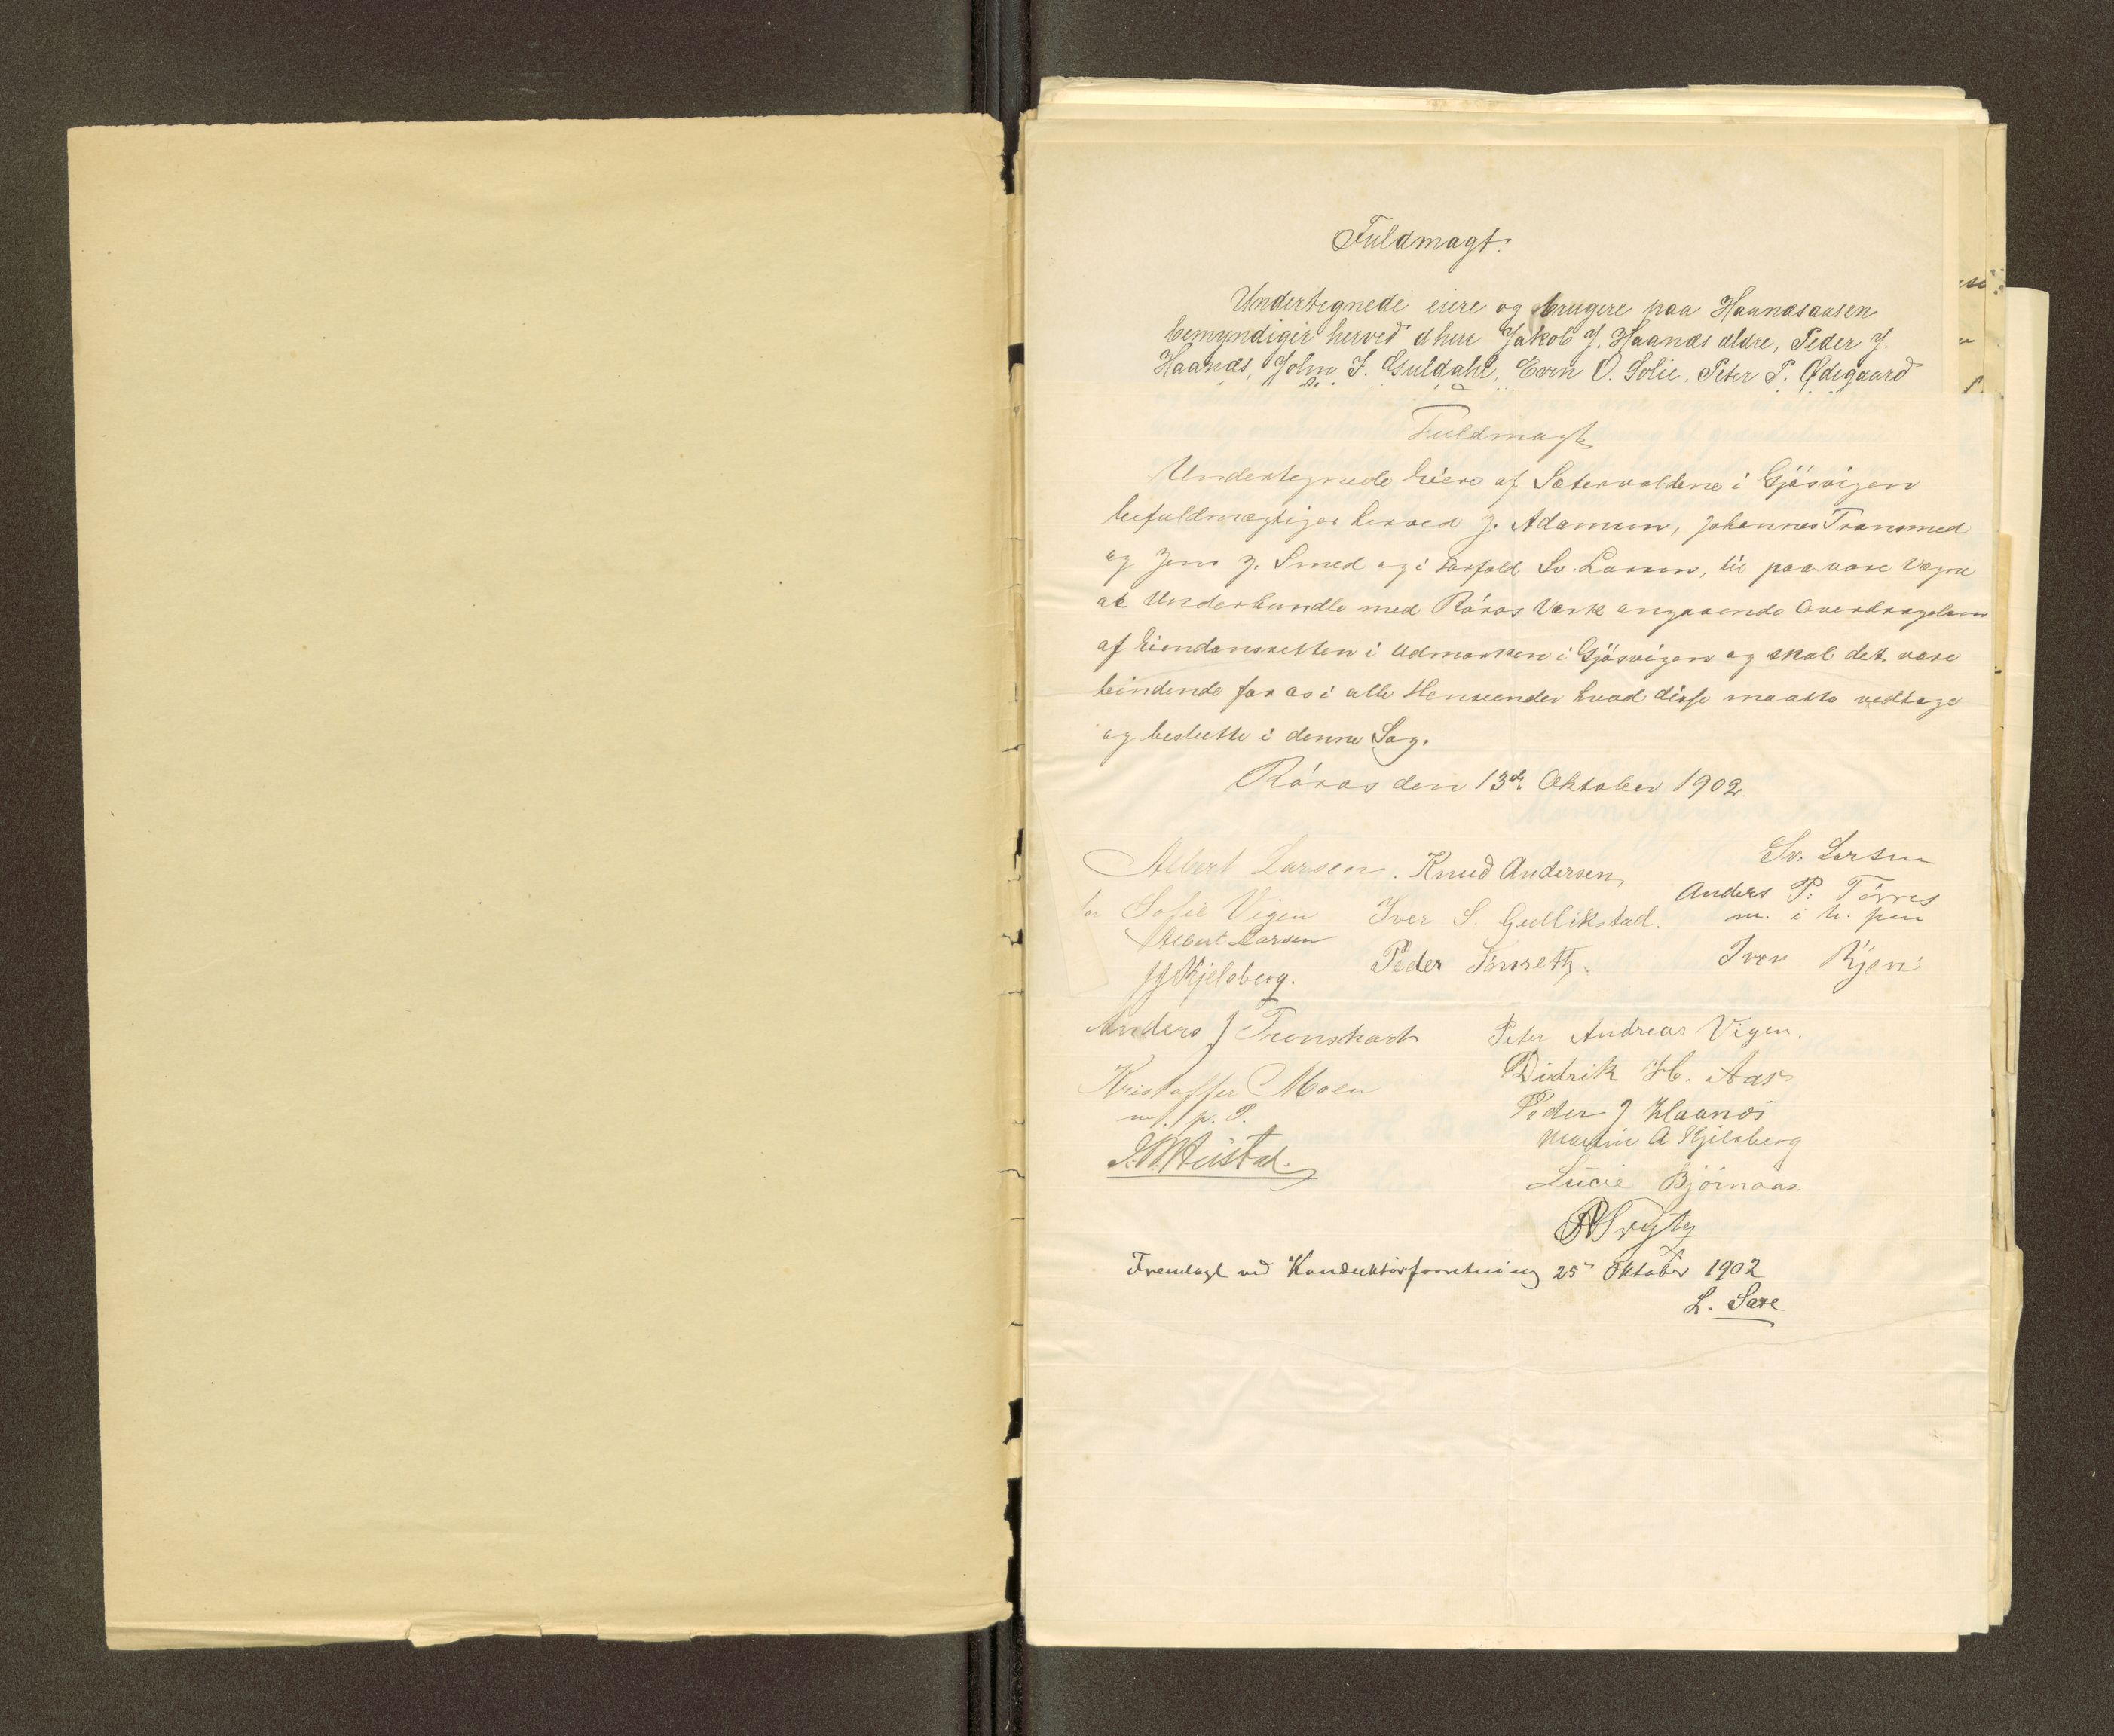 Fuldmagt.
Undertegnede eiere og brugere paa Haanæsaasen
bemyndiger herved dhrr Jakob J. Haanæs ældre, Peder J.
Haanæs, John J. Guldahl, Even O. Solie, Peter P. Ødegaard
Fuldmagt
Undertegnede Eiere af Sætervoldene i Gjösvigen
befuldmægtiger herved J. Adamsen, Johannes Transmed
og Jens J. Smed og i Forfald Sv. Larsen, til paa vore Vegne
at Underhandle med Röros Værk angaaende Overdragelsen
af Eiendomsretten i Udmarken i Gjösvigen og skal det være
bindende for os i alle Henseender hvad disse maatte vedtage
og beslutte i denne Sag.
Röros den 13de Oktober 1902.
Albert Larsen. Knud Andersen, Sv. Larsen
for Sofie Vigen Iver S. Gullikstad. Anders P. Törres
Albert Larsen m. i h. pen
Kjelsberg. Peder Iver
Anders J Peter Andreas Vigen.
Kristoffer Moen Didrik H. Aas
m. p. P. Peder J Haanæs
Martin A Kjelsberg
Lucie Björnaas.
Fremlagt ved Konduktörforretning 25de Oktober 1902
L. Saxe